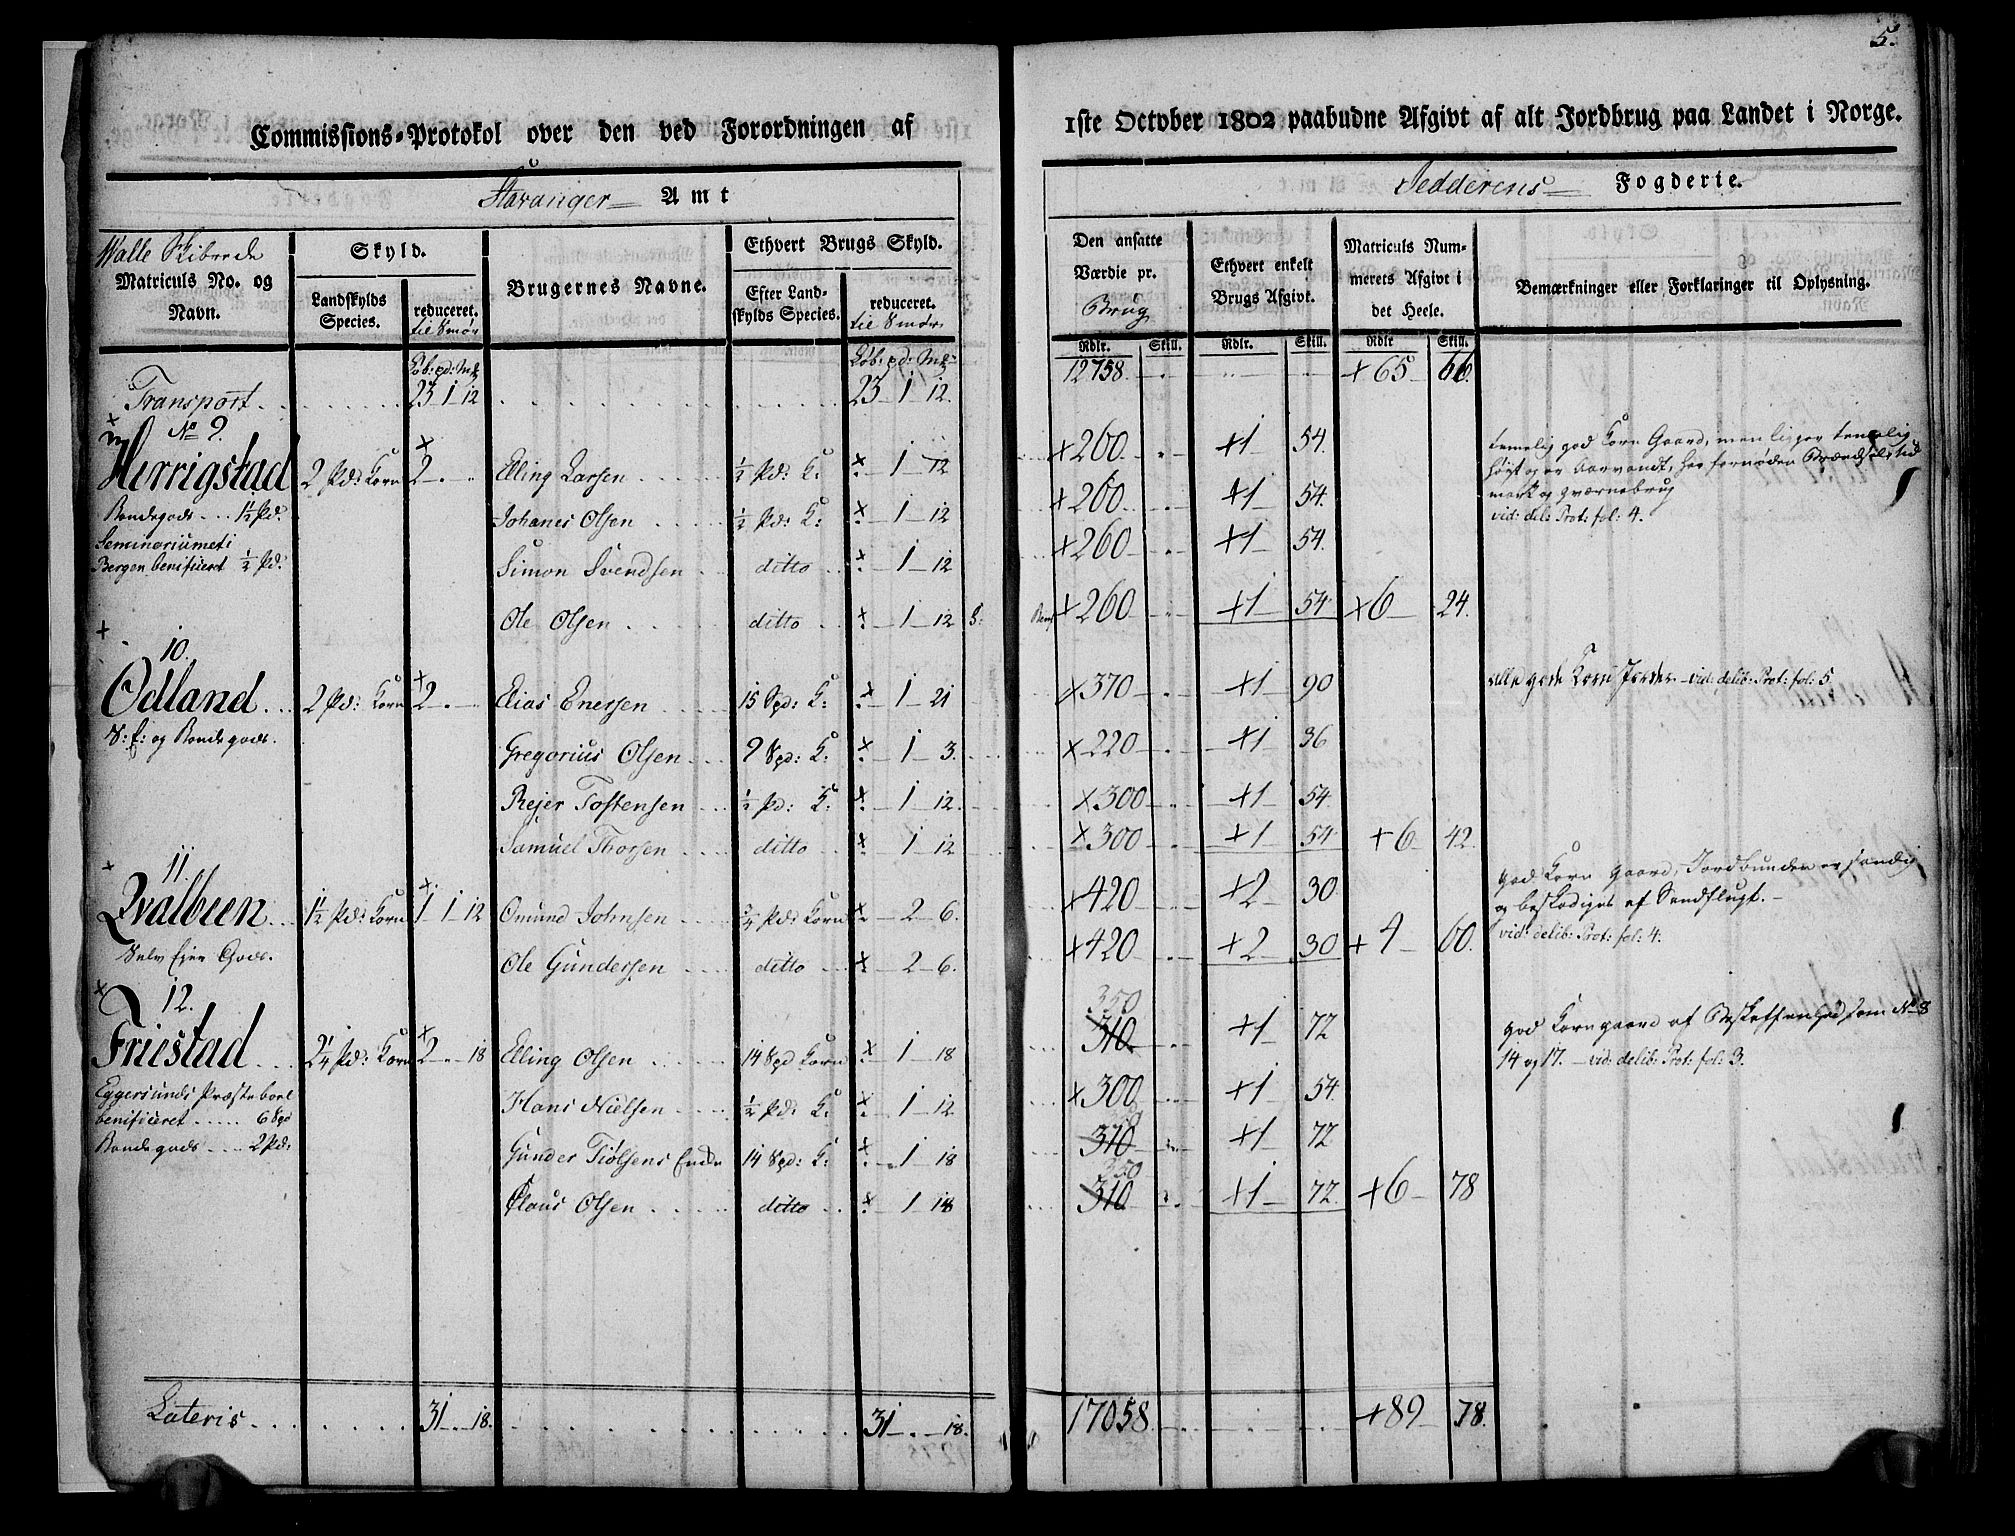 5.
Commissions-Protokol over den ved Forordningen af 1ste October 1802 paabudne Afgivt af alt Jordbrug paa Landet i Norge.
Stavanger Amt
Jedderens Fogderie.
Walle Skibrede
Matriculs No. og Navn.
Skyld.
Landskylds Species.
reduceret. til Smør
Brugernes Navne.
Ethvert Brugs Skyld.
Efter Landskylds Species.
reduceret. til Smør
Den ansatte Værdie pr. Brug
Ethvert enkelt Brugs Afgivt.
Matriculs Nummerets Afgivt i det Heele.
Bemærkninger eller Forklaringer til Oplysning.
Løb: pd: Mk Løb: pd: Mk Rdlr. Skill. Rdlr. Skill. Rdlr Skill.
Transport 23 1 12 23 1 12 12758 +65 66
No 9.
Herrigstad 2 Pd: Korn 2 Elling Larsen ½ Pd: K: 1 12 +260 +1 54 temelig god Korn Gaard, men ligger temelig
høyt og er
Bondegods 1½ Pd: Johanes Olsen ½ Pd: K: 1 12 +260 +1 54
mark og qværnebrug
vid: del: Prot: fol: 4.
Seminariumet i
Bergen benificeret ½ Pd: Simon Svendsen ditto 1 12 +260 +1 54
Ole Olsen ditto 1 12 +260 +1 54 +6 24
10.
Odland 2 Pd: Korn 2 Elias Enersen 15 Spd: K: 1 21 +370 +1 90 alle gode Korn Jorder vid: delib: Prot: fol: 5
S: E: og Bondegods. Gregorius Olsen 9 Spd: K: 1 3 +220 +1 36
Rejer Tostensen ½ Pd: K: 1 12 +300 +1 54
Samuel Thorsen ditto 1 12 +300 +1 54 +6 42
11.
Qvalbeen 1½ Pd: Korn 1 1 12 Omund Johnsen ¾ Pd: Korn 2 6 +420 +2 30 god Korn Gaard, Jordbunden er sandig
og beskadiges af Sandflugt.
Selv Eier Gods. Ole Gundersen ditto 2 6 +420 +2 30 +4 60 vid: delib: Prot: fol: 4.
12.
Friestad 2¼ Pd: Korn 2 18 Elling Olsen 14 Spd Korn 1 18 310 350 +1 72 god Korngaard af Beskaffenhed som No 8
14 og 17. vid: delib: Prot: fol: 3.
Eggersunds Præstebord
benificeret 6 Spd Hans Nielsen ½ Pd: K: 1 12 +300 +1 54
Bondegods 2 Pd: Gunder Tiølsens Enke 14 Spd: K: 1 18 310 350 +1 72
Claus Olsen ditto 1 18 310 350 +1 72 +6 78
Lateris 31 18 31 18 17058 +89 78